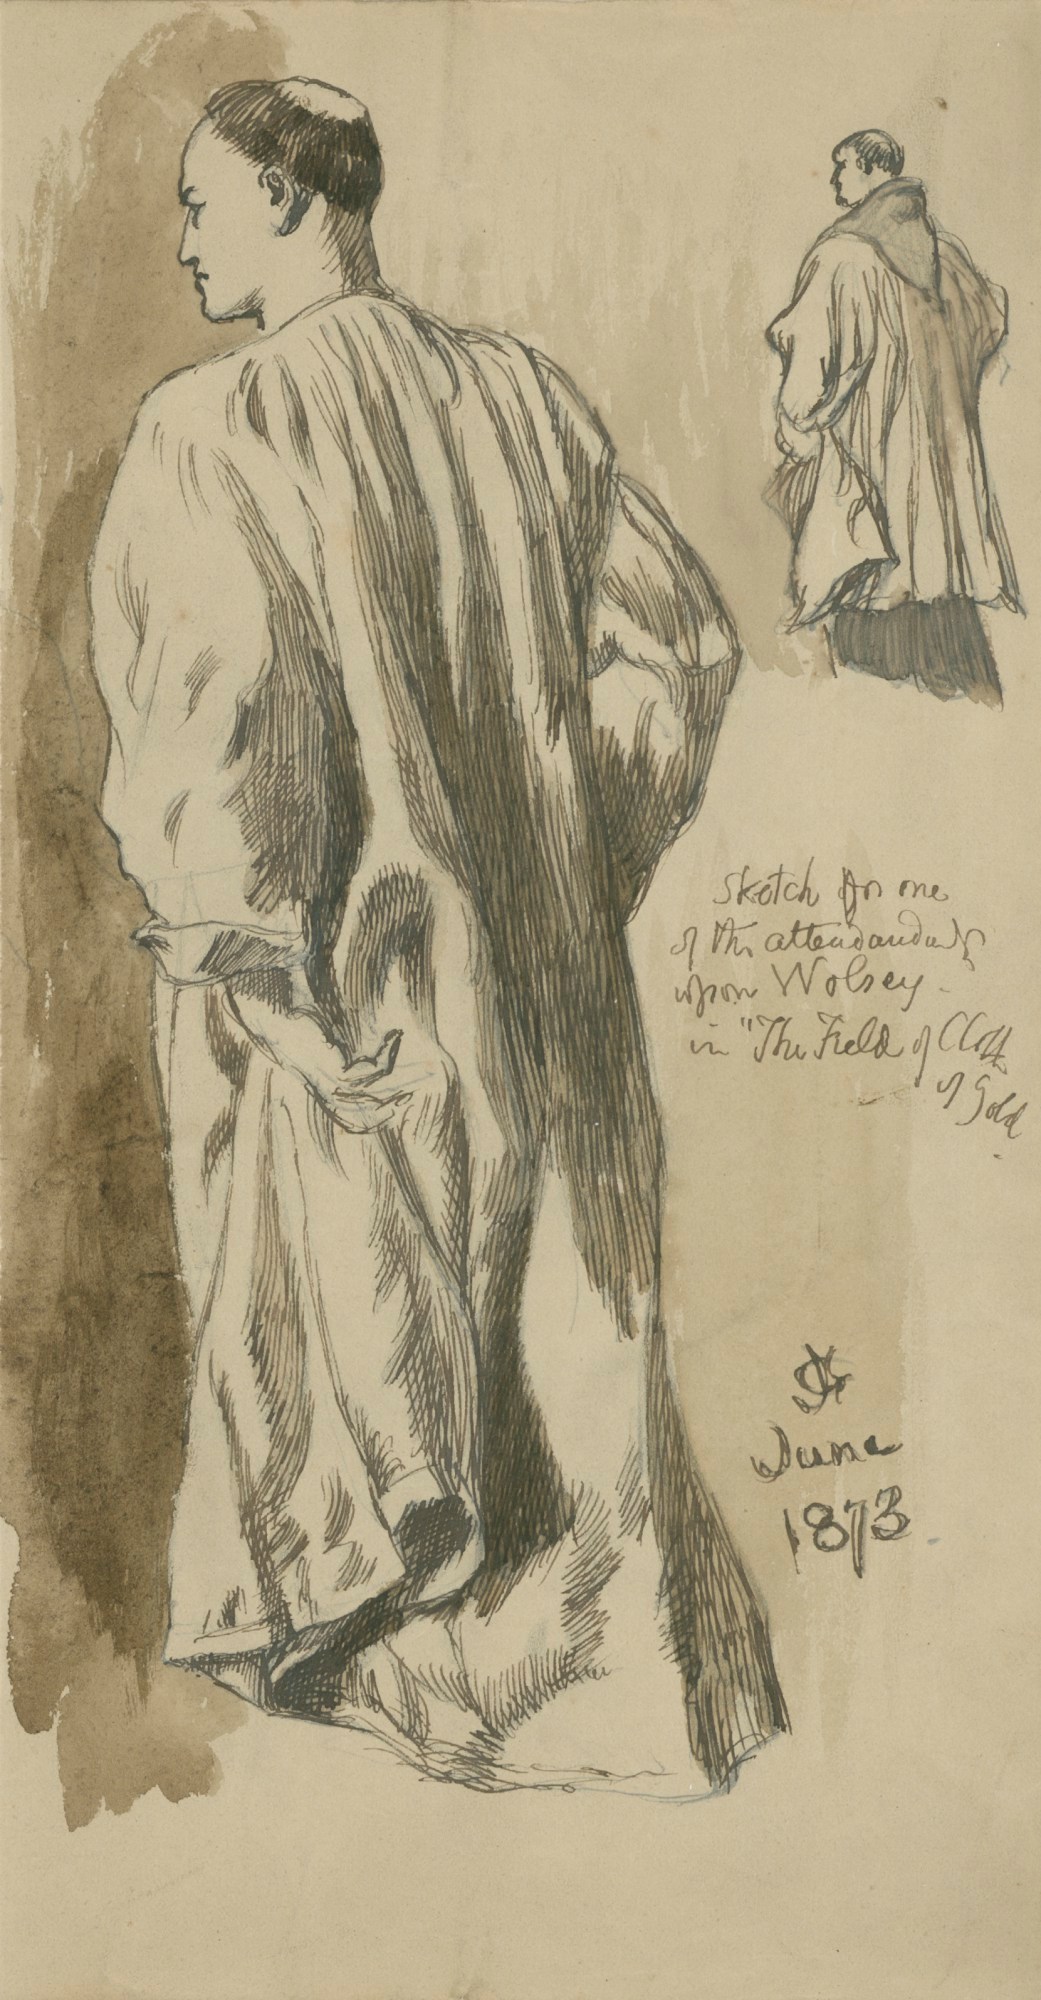 Sketch for one
of the attendants
upon Wolsey.
in "The Field of Cloth
of Gold
JG
June
1873